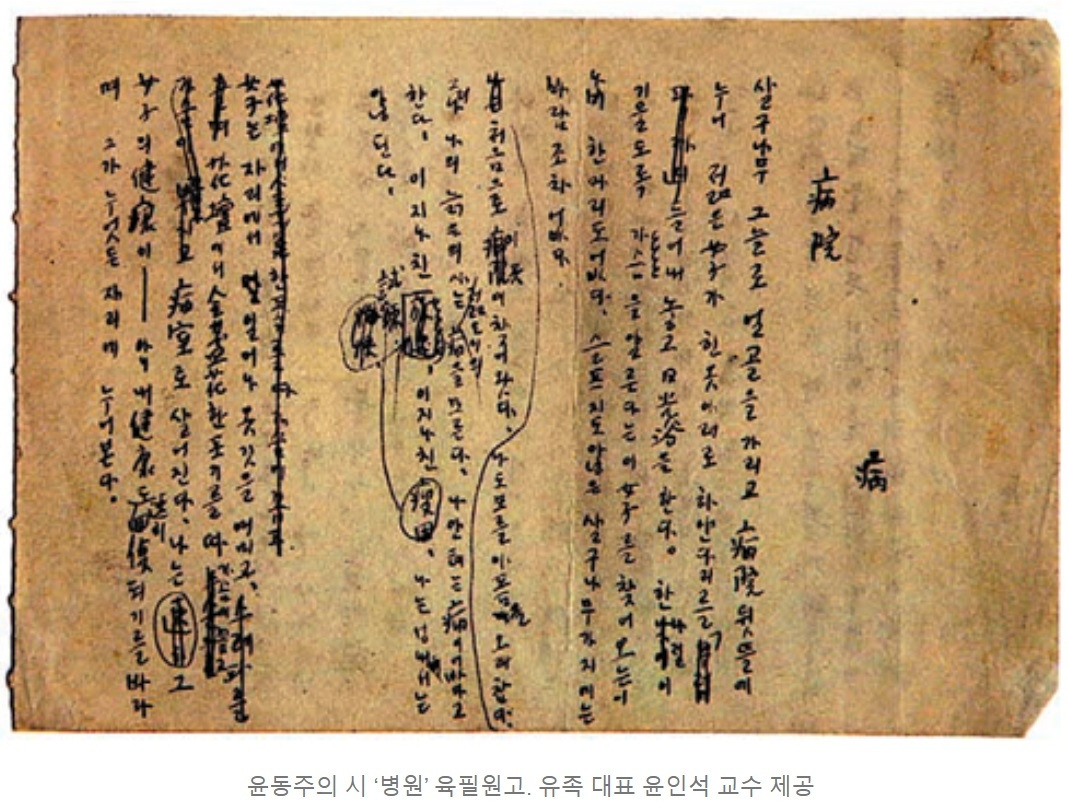 病
病院
살구나무 그늘로 얼골을 가리고 病院뒷뜰에
누어 젊은 女子가 힌옷아래로 하얀다리를
드러내 놓고 日光浴을 한다。 한나절이
기울도록 가슴을 알른다는 이 女子를 찾어 오는이
나비 한마리도 없다. 슬프지도 않은 살구나무가지에는
바람조차 없다.
처음으로 이곳에 찾어왔다. 나도모를 아픔을 오래참다.
나의 늙은 의사는 젊은이의 病을 모른다. 나안테는 病이 없다고
한다. 이 지나친 試鍊, 이지나친 疲勞, 나는 성내서는
않된다.
女子는 자리에서 일어나 옷깃을 여미고,
花壇에서 金盞花 한포기를 따 가슴에 꼽고
病室로 살어진다. 나는 그
女子의 健康이―― 아니 내 健康도 速히 回復되기를 바라
며 그가 누엇든 자리에 누어본다.
윤동주의 시 ‘병원’ 육필원고. 유족 대표 윤인석 교수 제공